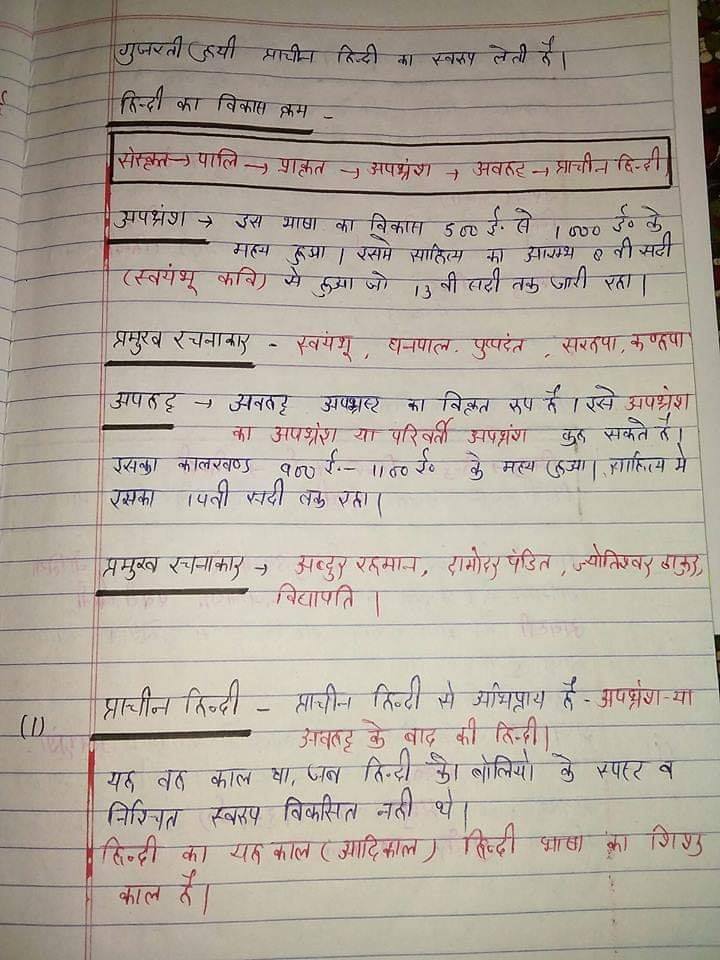 गुजरती हुयी प्राचीन हिन्दी का स्वरुप लेती है।
हिन्दी का विकास क्रम -
संस्कृत→ पालि → प्राकृत → अपभ्रंश → अवहट्ट → प्राचीन हिन्दी
अपभ्रंश → इस भाषा का विकास 500 ई. से 1000 ई० के
मध्य हुआ। इसमे साहित्य का आरम्भ 8 वी सदी
(स्वयंभू कवि) से हुआ जो 13 वी सदी तक जारी रहा।
प्रमुख रचनाकार - स्वयंभू, धनपाल. पुष्पदंत, सरहपा, कण्हपा
अपहट्ट → अवहट्ट अपभ्रष्ट का विकृत रुप है। इसे अपभ्रंश
का अपभ्रंश या परिवर्ती अपभ्रंश कह सकते है।
इसका कालखण्ड 900 ई.- 1100 ई० के मध्य हुआ। साहित्य मे
इसका 14वी सदी तक रहा।
प्रमुख रचनाकार → अब्दुर रहमान, दामोदर पंडित, ज्योतिश्वर ठाकुर,
विद्यापति।
(1) प्राचीन हिन्दी - प्राचीन हिन्दी से अभिप्राय है - अपभ्रंश-या
अवहट्ट के बाद की हिन्दी।
यह वह काल था, जब हिन्दी की बोलियो के स्पष्ट व
निश्चित स्वरुप विकसित नही थे।
हिन्दी का यह काल (आदिकाल) हिन्दी भाषा का शिशु
काल है।